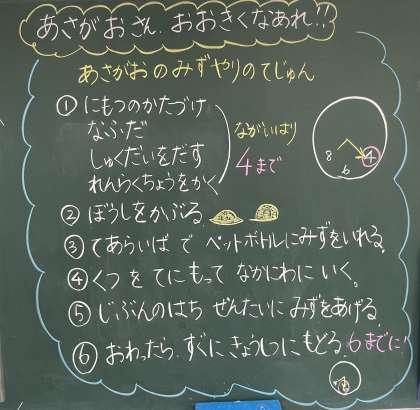 あさがおさん.おおきくなあれ!!
あさがおのみずやりのてじゅん
① にもつのかたづけ
なふだ
しゅくだいをだす
れんらくちょうをかく
ながいはり
4まで
8 6 4
② ぼうしをかぶる.
③ てあらいば で ペットボトルにみずをいれる.
④ くつ を てにもって なかにわに いく。
⑤ じぶんのはち ぜんたいに みずをあげる.
⑥ おわったら.すぐに きょうしつにもどる.6までに!
6